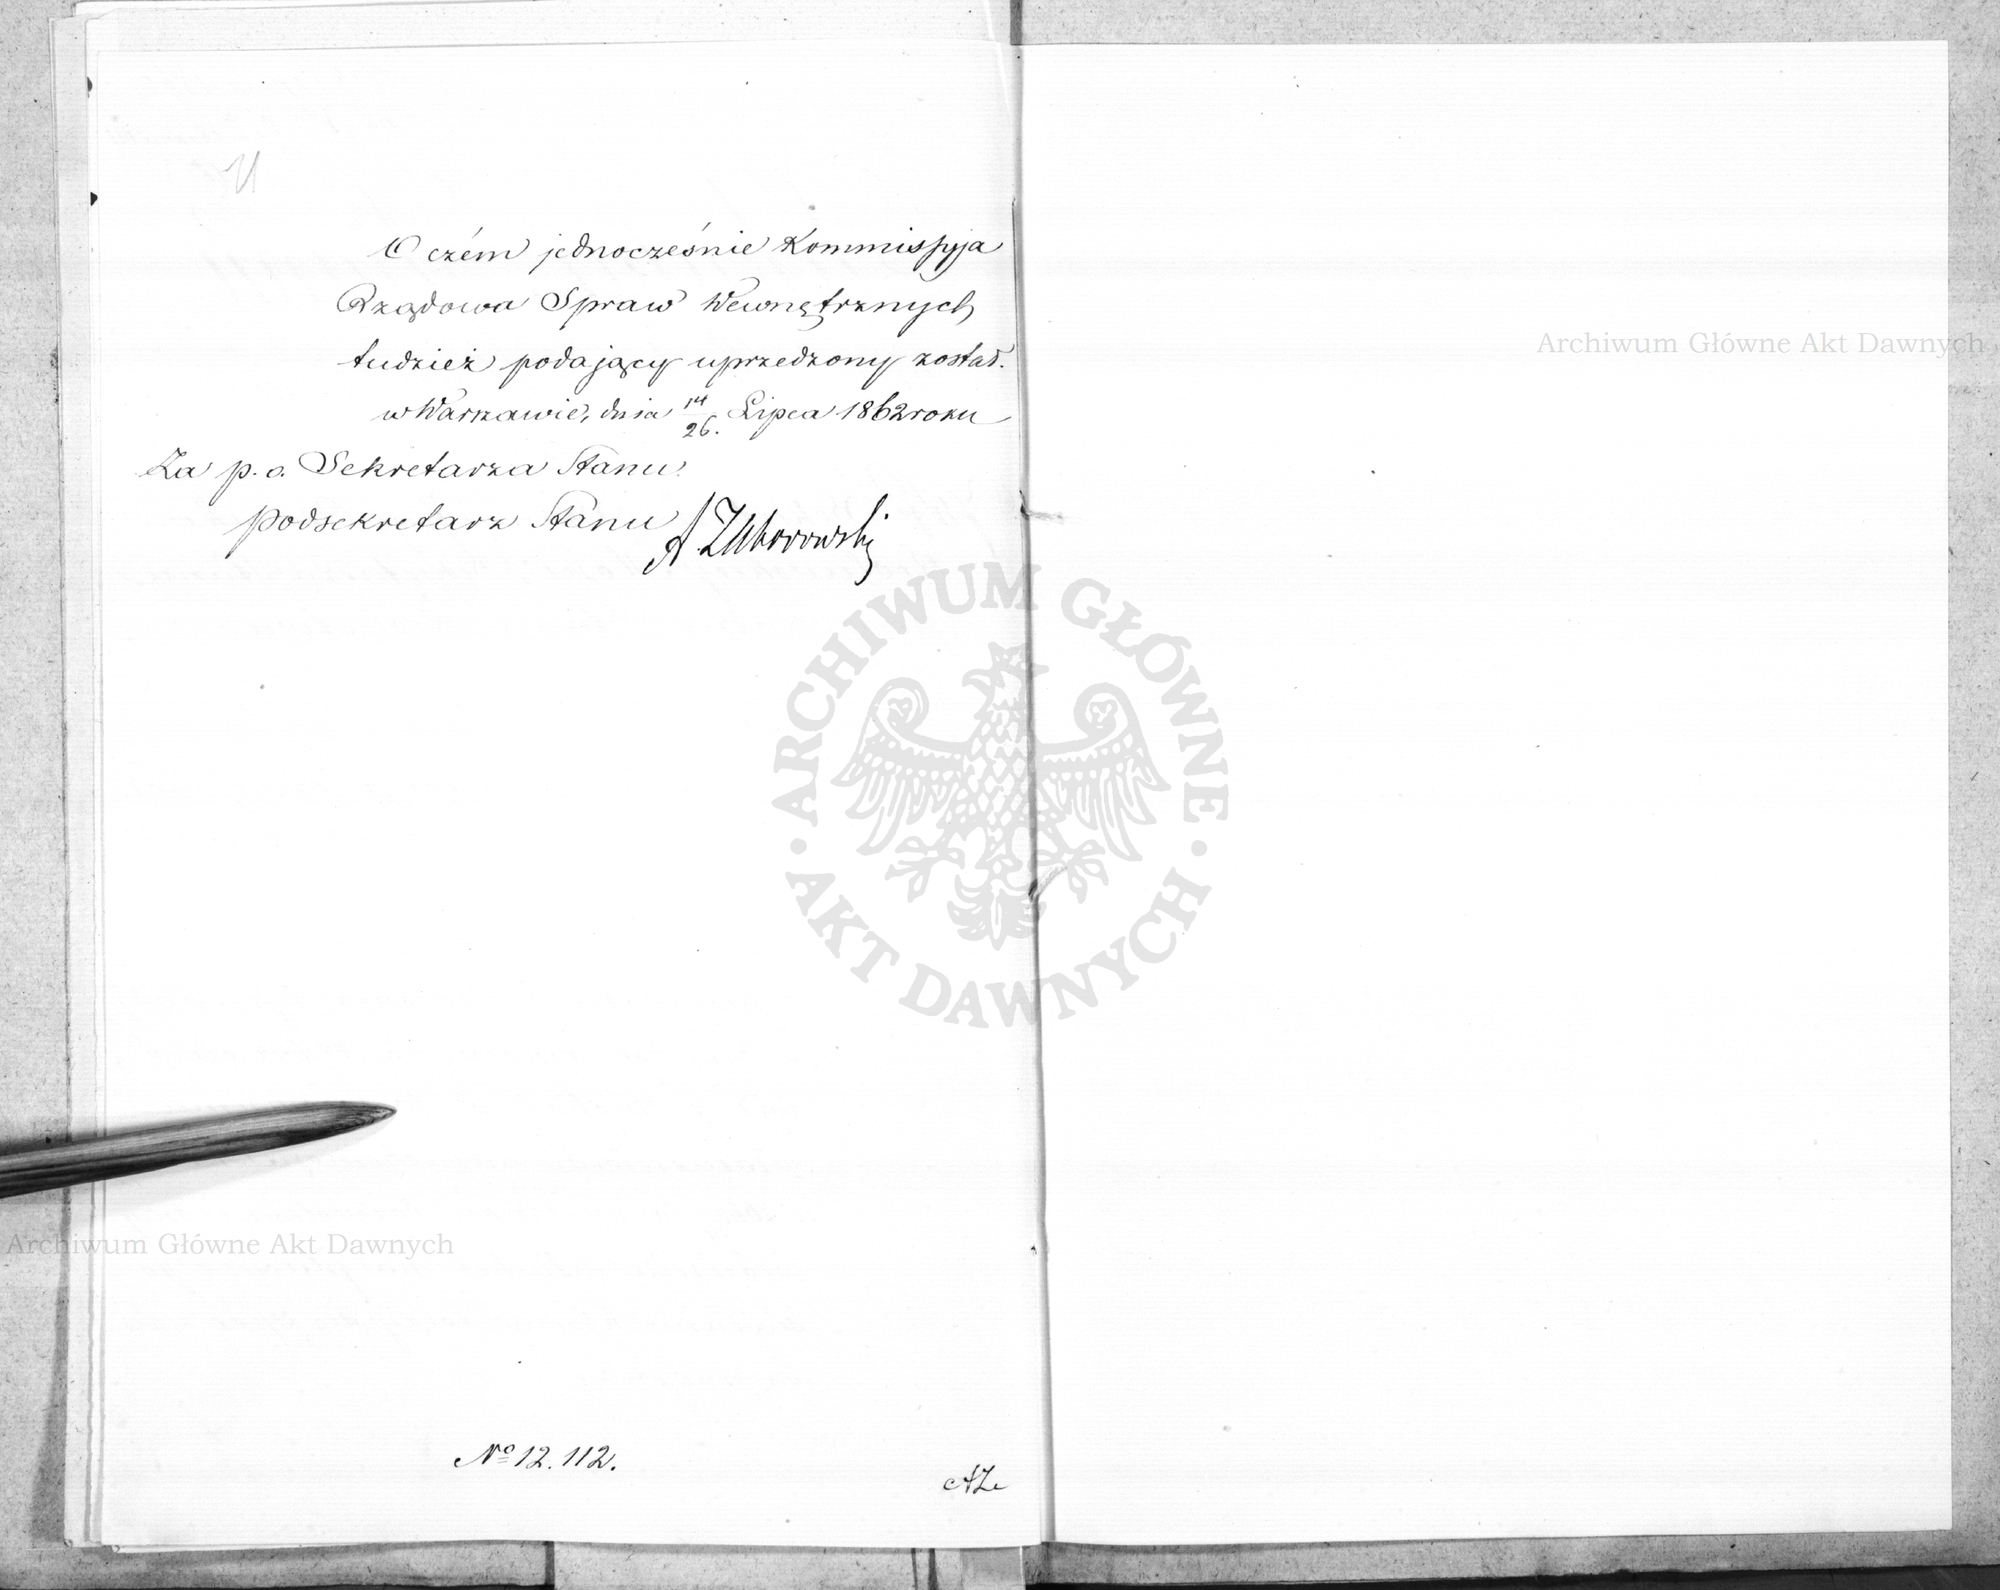 O czém jednocześnie Kommissyja
Rządowa Spraw Wewnętrznych
tudzież podający uprzedzony został.
w Warszawie, dnia 14/26. Lipca 1862 roku
Za p. o. Sekretarza Stanu
Podsekretarz Stanu
A Zaborowski
Archiwum Główne Akt Dawnych
ARCHIWUM GŁÓWNE
AKT DAWNYCH
Archiwum Główne Akt Dawnych
No 12.112.
AZ